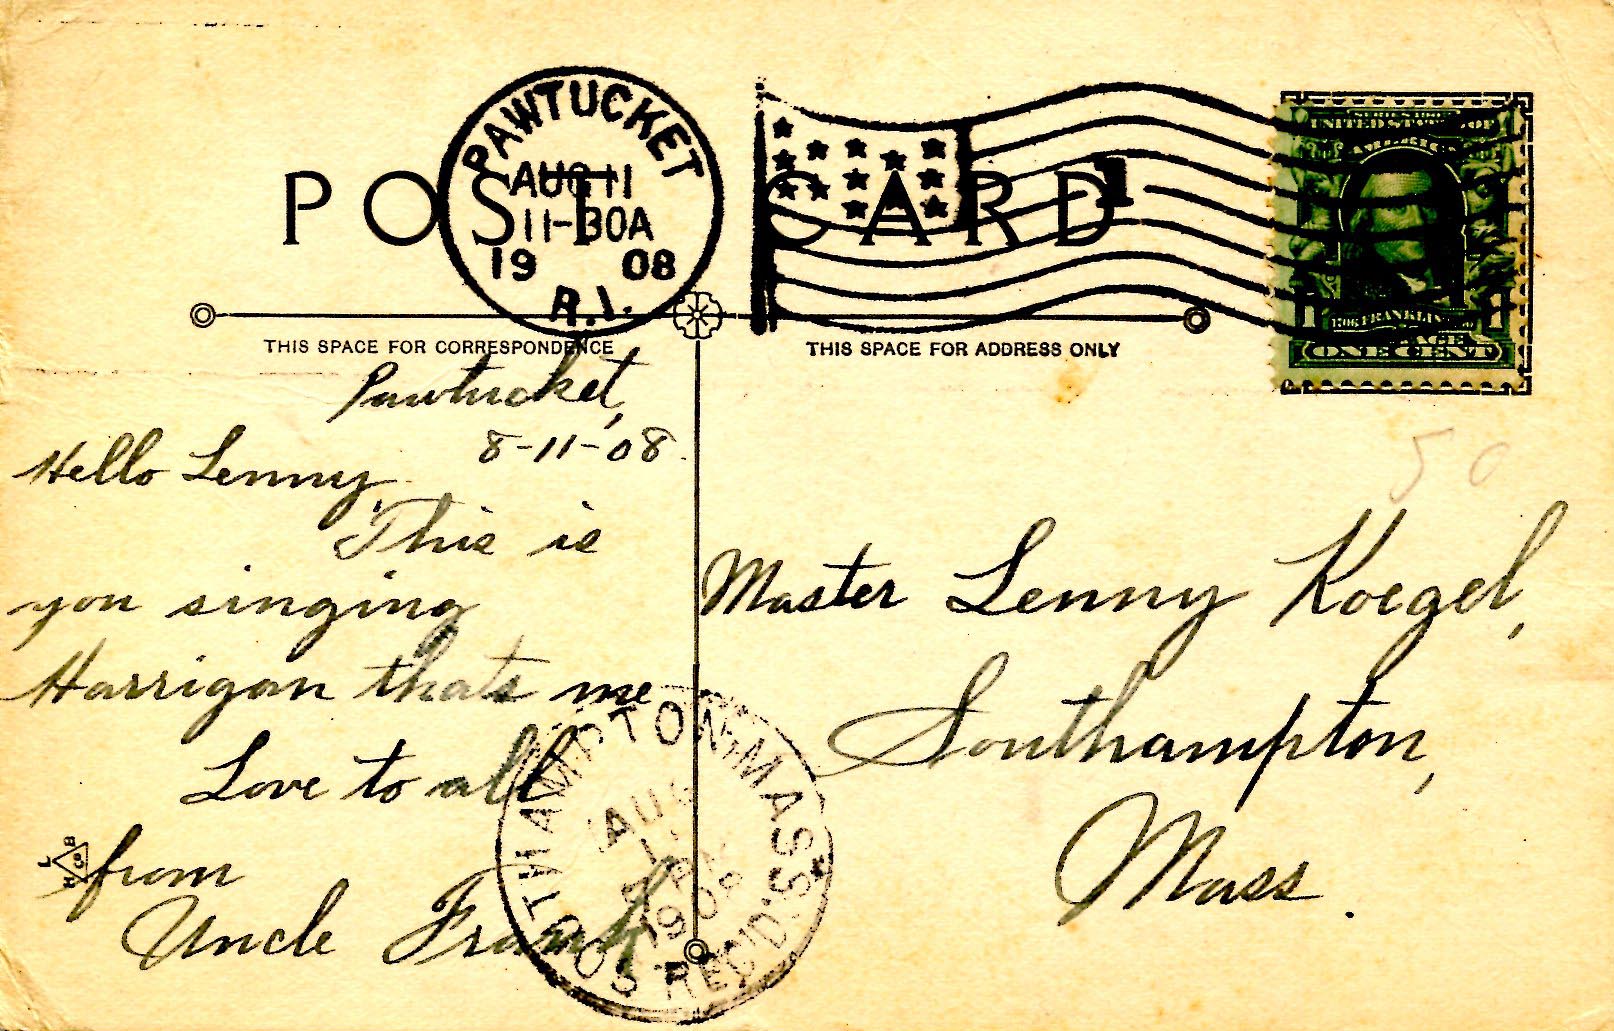 POST CARD
PAWTUCKET
AUG 11
11-30A
19 08
R.I.
1
UNITED STATES OF
AMERICA
FRANKLIN
ONE CENT
THIS SPACE FOR CORRESPONDENCE
THIS SPACE FOR ADDRESS ONLY
Pawtucket,
8-11-08.
Hello Lenny,
This is
you singing
Harrigan thats me
Love to all
from
Uncle Frank
50
Master Lenny Koegel,
Southampton,
Mass.
SOUTHAMPTON, MASS.
AUG
1908
REC'D.